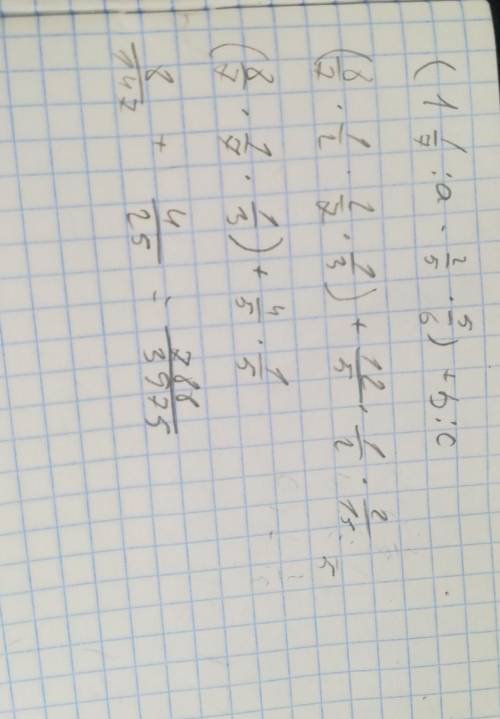 (1 1/7 : a · 2/5 · 5/6) + b : c
(8/7 · 1/2 · 2/7 · 1/3) + 12/5 · 1/2 · 2/15
(8/7 · 1/7 · 1/3) + 4/5 · 1/5
8/147 + 4/25 = 788/3975